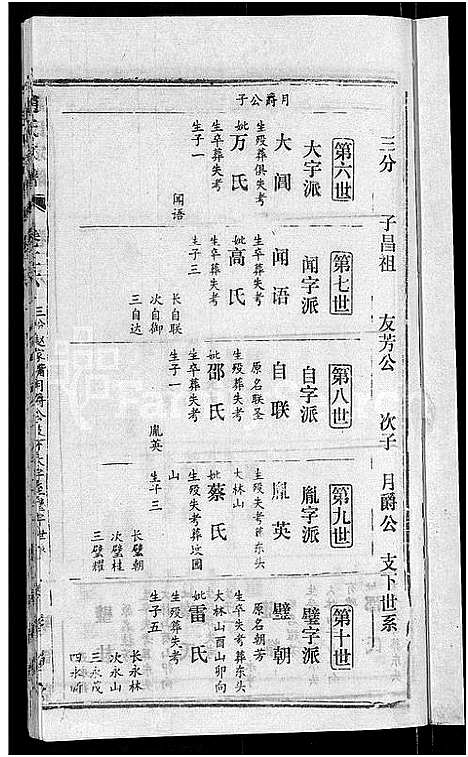 三分 子昌祖 友芳公 次子 月爵公 支下世系
第六世
大字派
月爵公子
大阊
生殁葬俱失考
妣万氏
生卒葬失考
生子一
闻语
第七世
闻字派
闻语
生卒葬失考
妣高氏
生卒葬失考
生子三
长自联
次自御
三自达
第八世
自字派
自联
原名联圣
生殁葬失考
妣邵氏
生卒葬失考
生子一
胤英
第九世
胤字派
胤英
生殁失考葬东头
大林山
妣蔡氏
生殁失考葬坟園
山
生子三
长璧朝
次璧桂
三璧耀
第十世
璧字派
璧朝
原名朝芳
生卒失考葬东头
大林山酉山卯向
妣雷氏
生殁葬失考
生子五
长永林
次永山
三永茂
四永昕